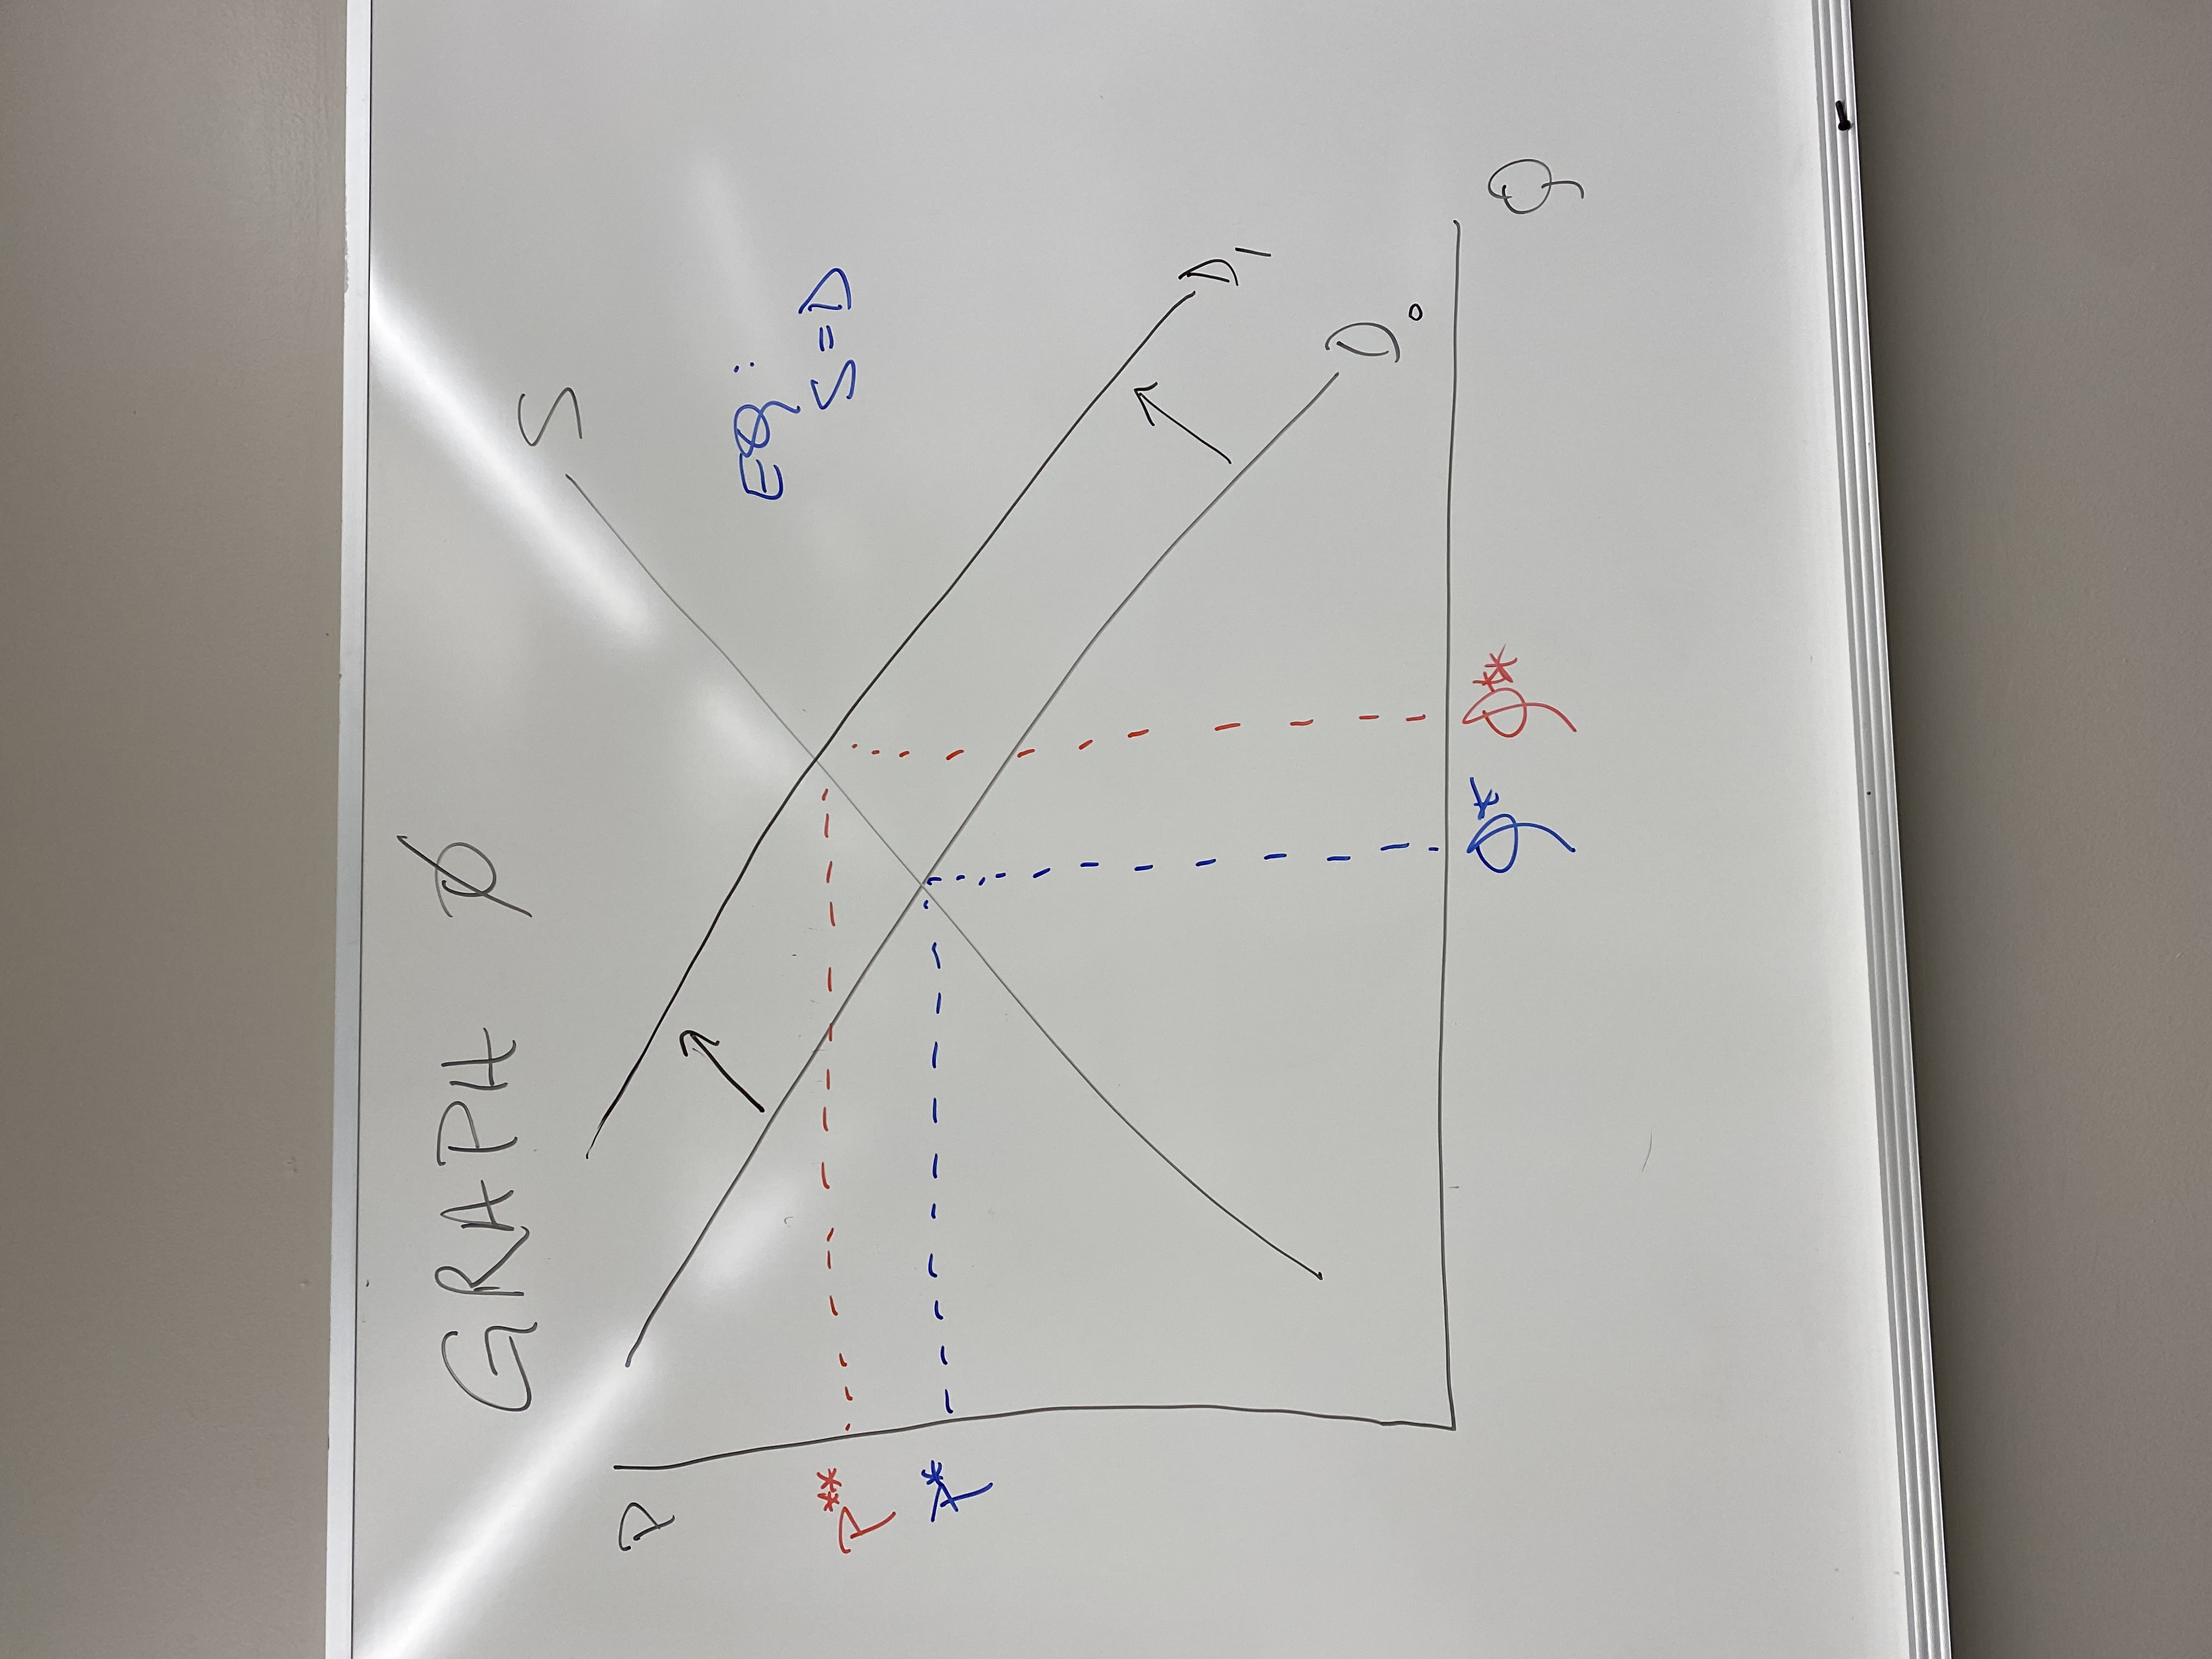 GRAPH Ø
S
P
EQ:
S=D
P**
P*
D₁
D₀
Q* Q**
Q